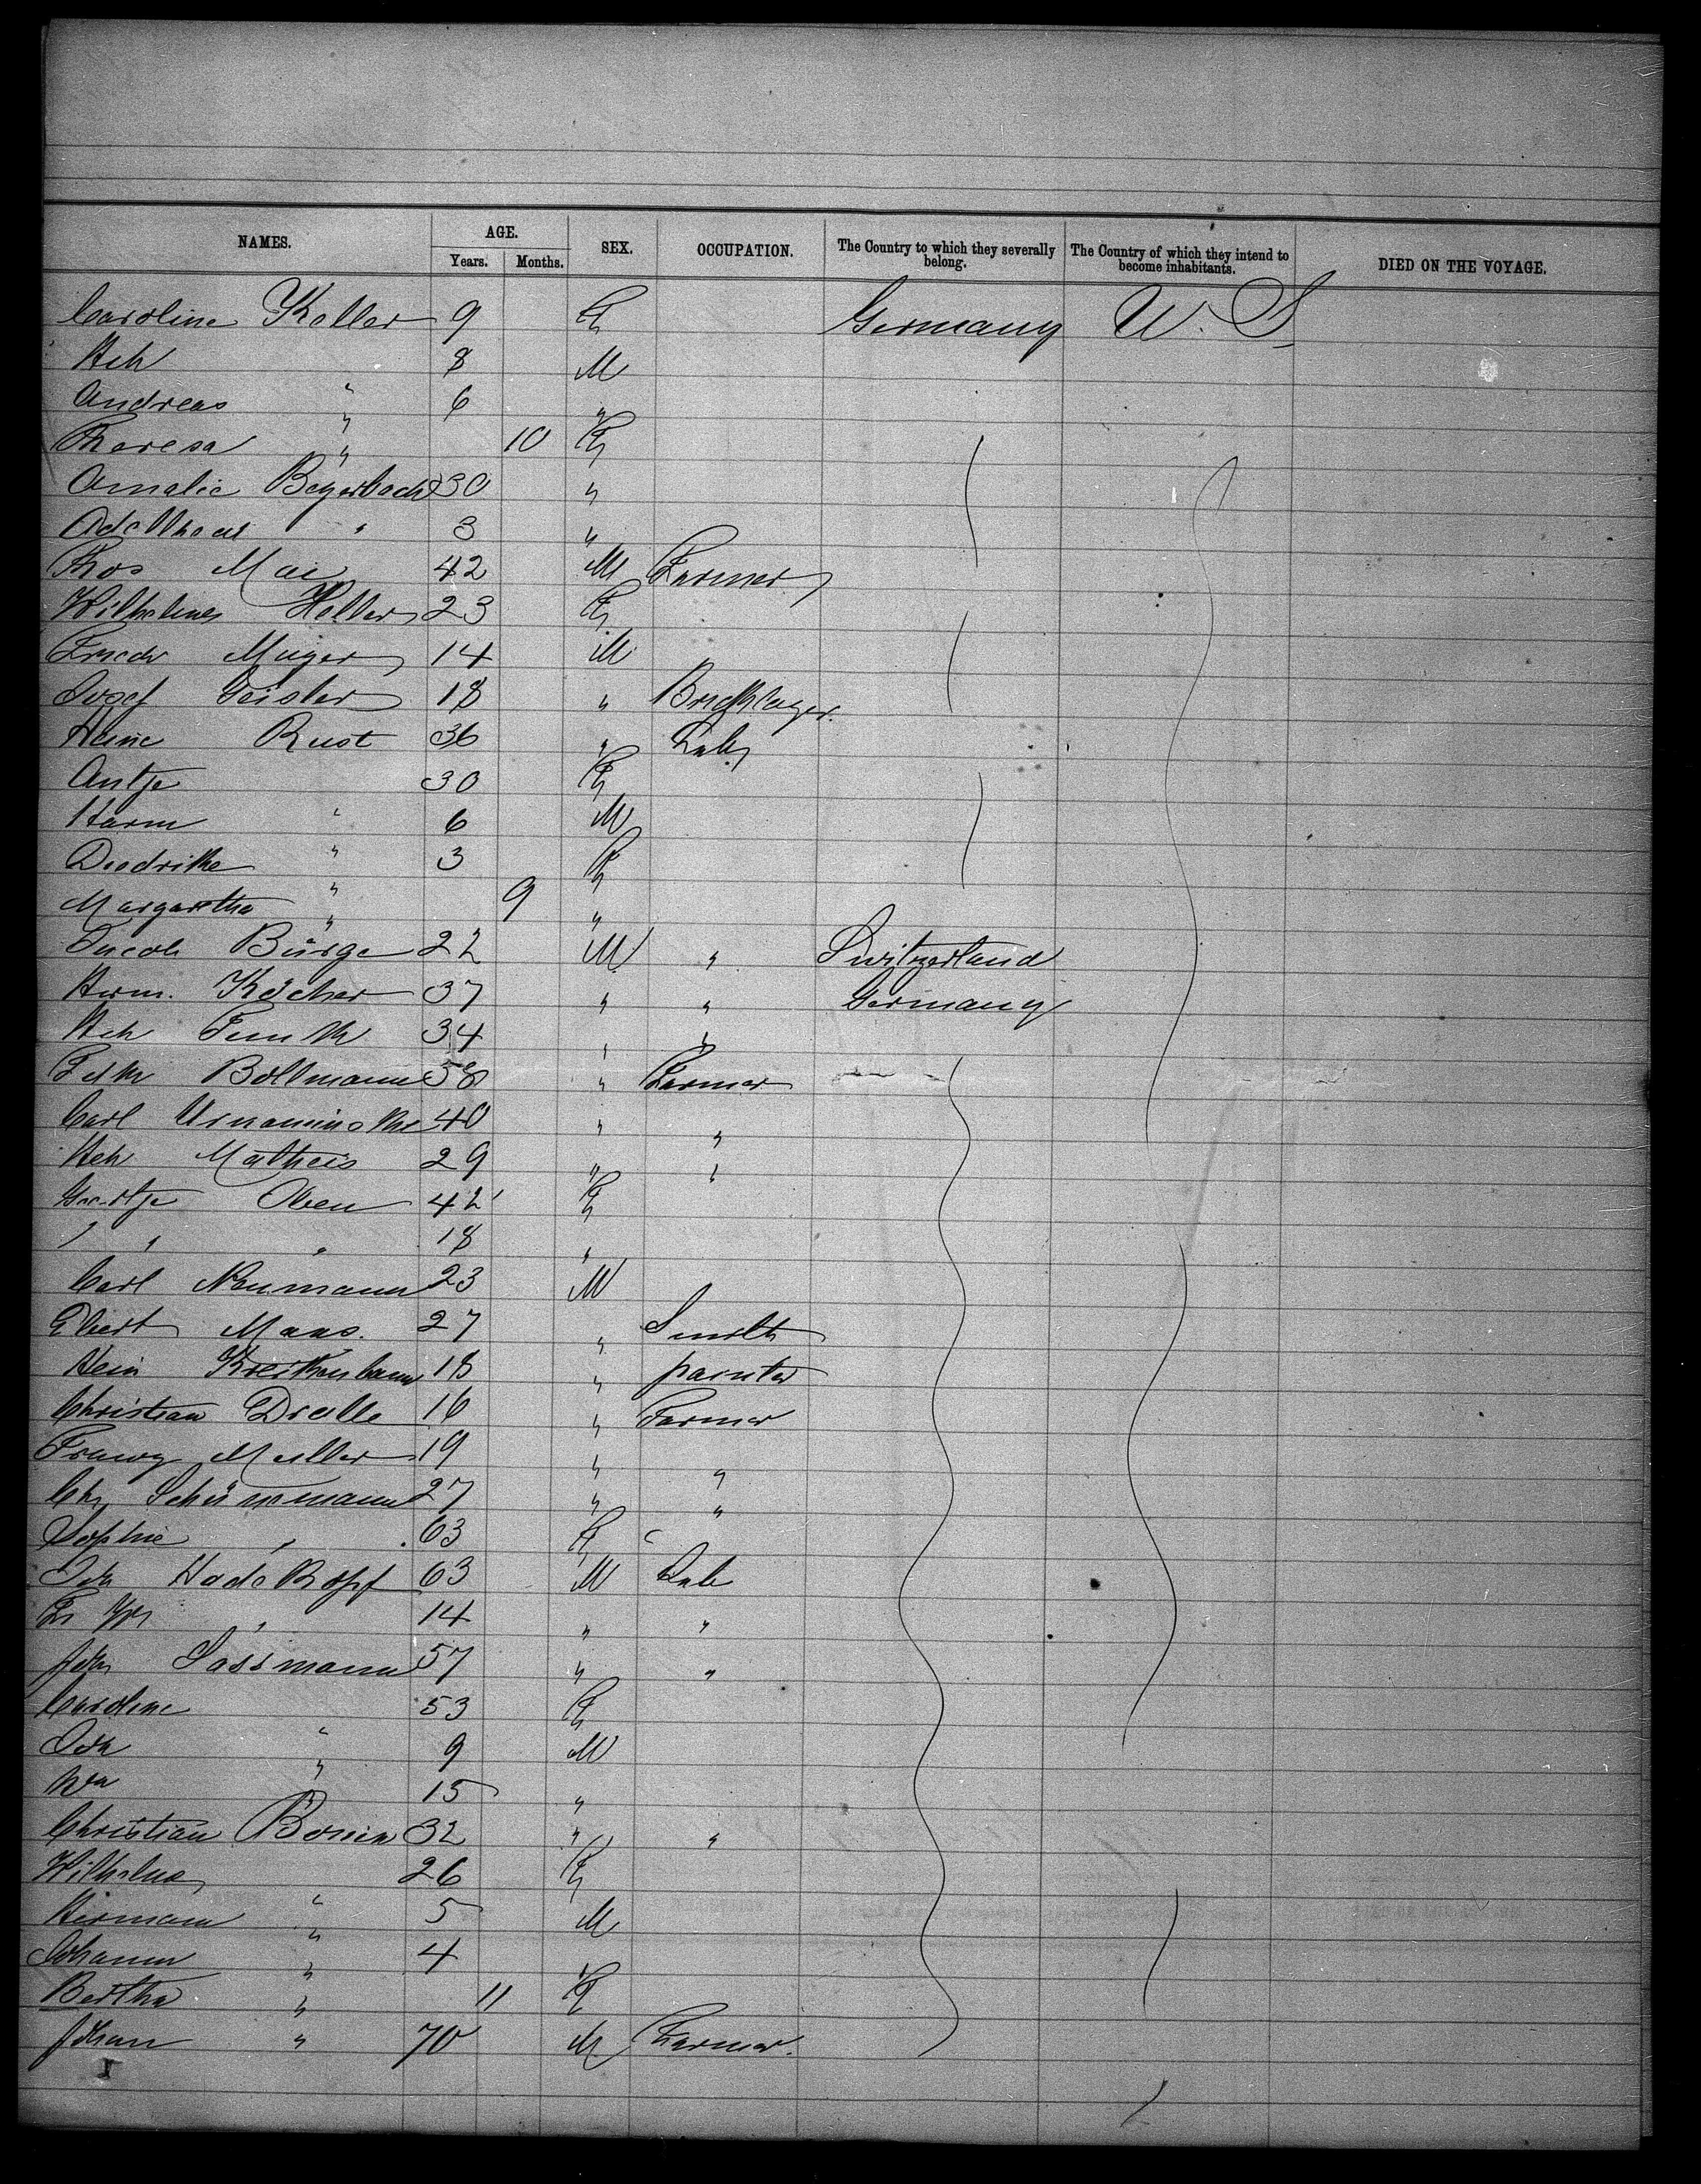 NAMES. AGE. SEX. OCCUPATION. The Country to which they severally belong. The Country of which they intend to become inhabitants. DIED ON THE VOYAGE.
Years. Months.
Caroline Keller 9 F Germany U. S.
Hch " 8 M
Andreas " 6 "
Theresa " 10 F
Amalie Beyerbach 30 "
Adelheid " 3 "
Mai 42 M Farmer
Heller 23 F
Friedr Meyer 14 M
Josef Geisler 18 " Bricklayer.
Heine Rust 36 " Lab
Antje " 30 F
Harm " 6 M
Diedrike " 3 F
Margaretha " 9 "
Jacob Bürge 22 M " Switzerland
Herm. Köcher 37 " " Germany
Hch 34 " "
Bollmann 58 " Farmer
Carl 40 " "
Hch Matheis 29 " "
Geertje Oben 42 F
" " " 18 "
Carl Neumann 23 M
Ebert Maas. 27 " Smith
Hein Kreikenbaum 18 " painter
Christian Drelle 16 " Farmer
Franz Muller 19 " "
Chr Schünemann 27 " "
Sophie " 63 F
Joh Hadekopf 63 M Lab
" 14 " "
Joh Sassmann 57 " "
Caroline " 53 F
Joh " 9 M
" 15 "
Christian Bonin 32 " "
" 26 F
Hermann " 5 M
Johann " 4
Bertha " 11 F
Johan " 70 M Farmer.